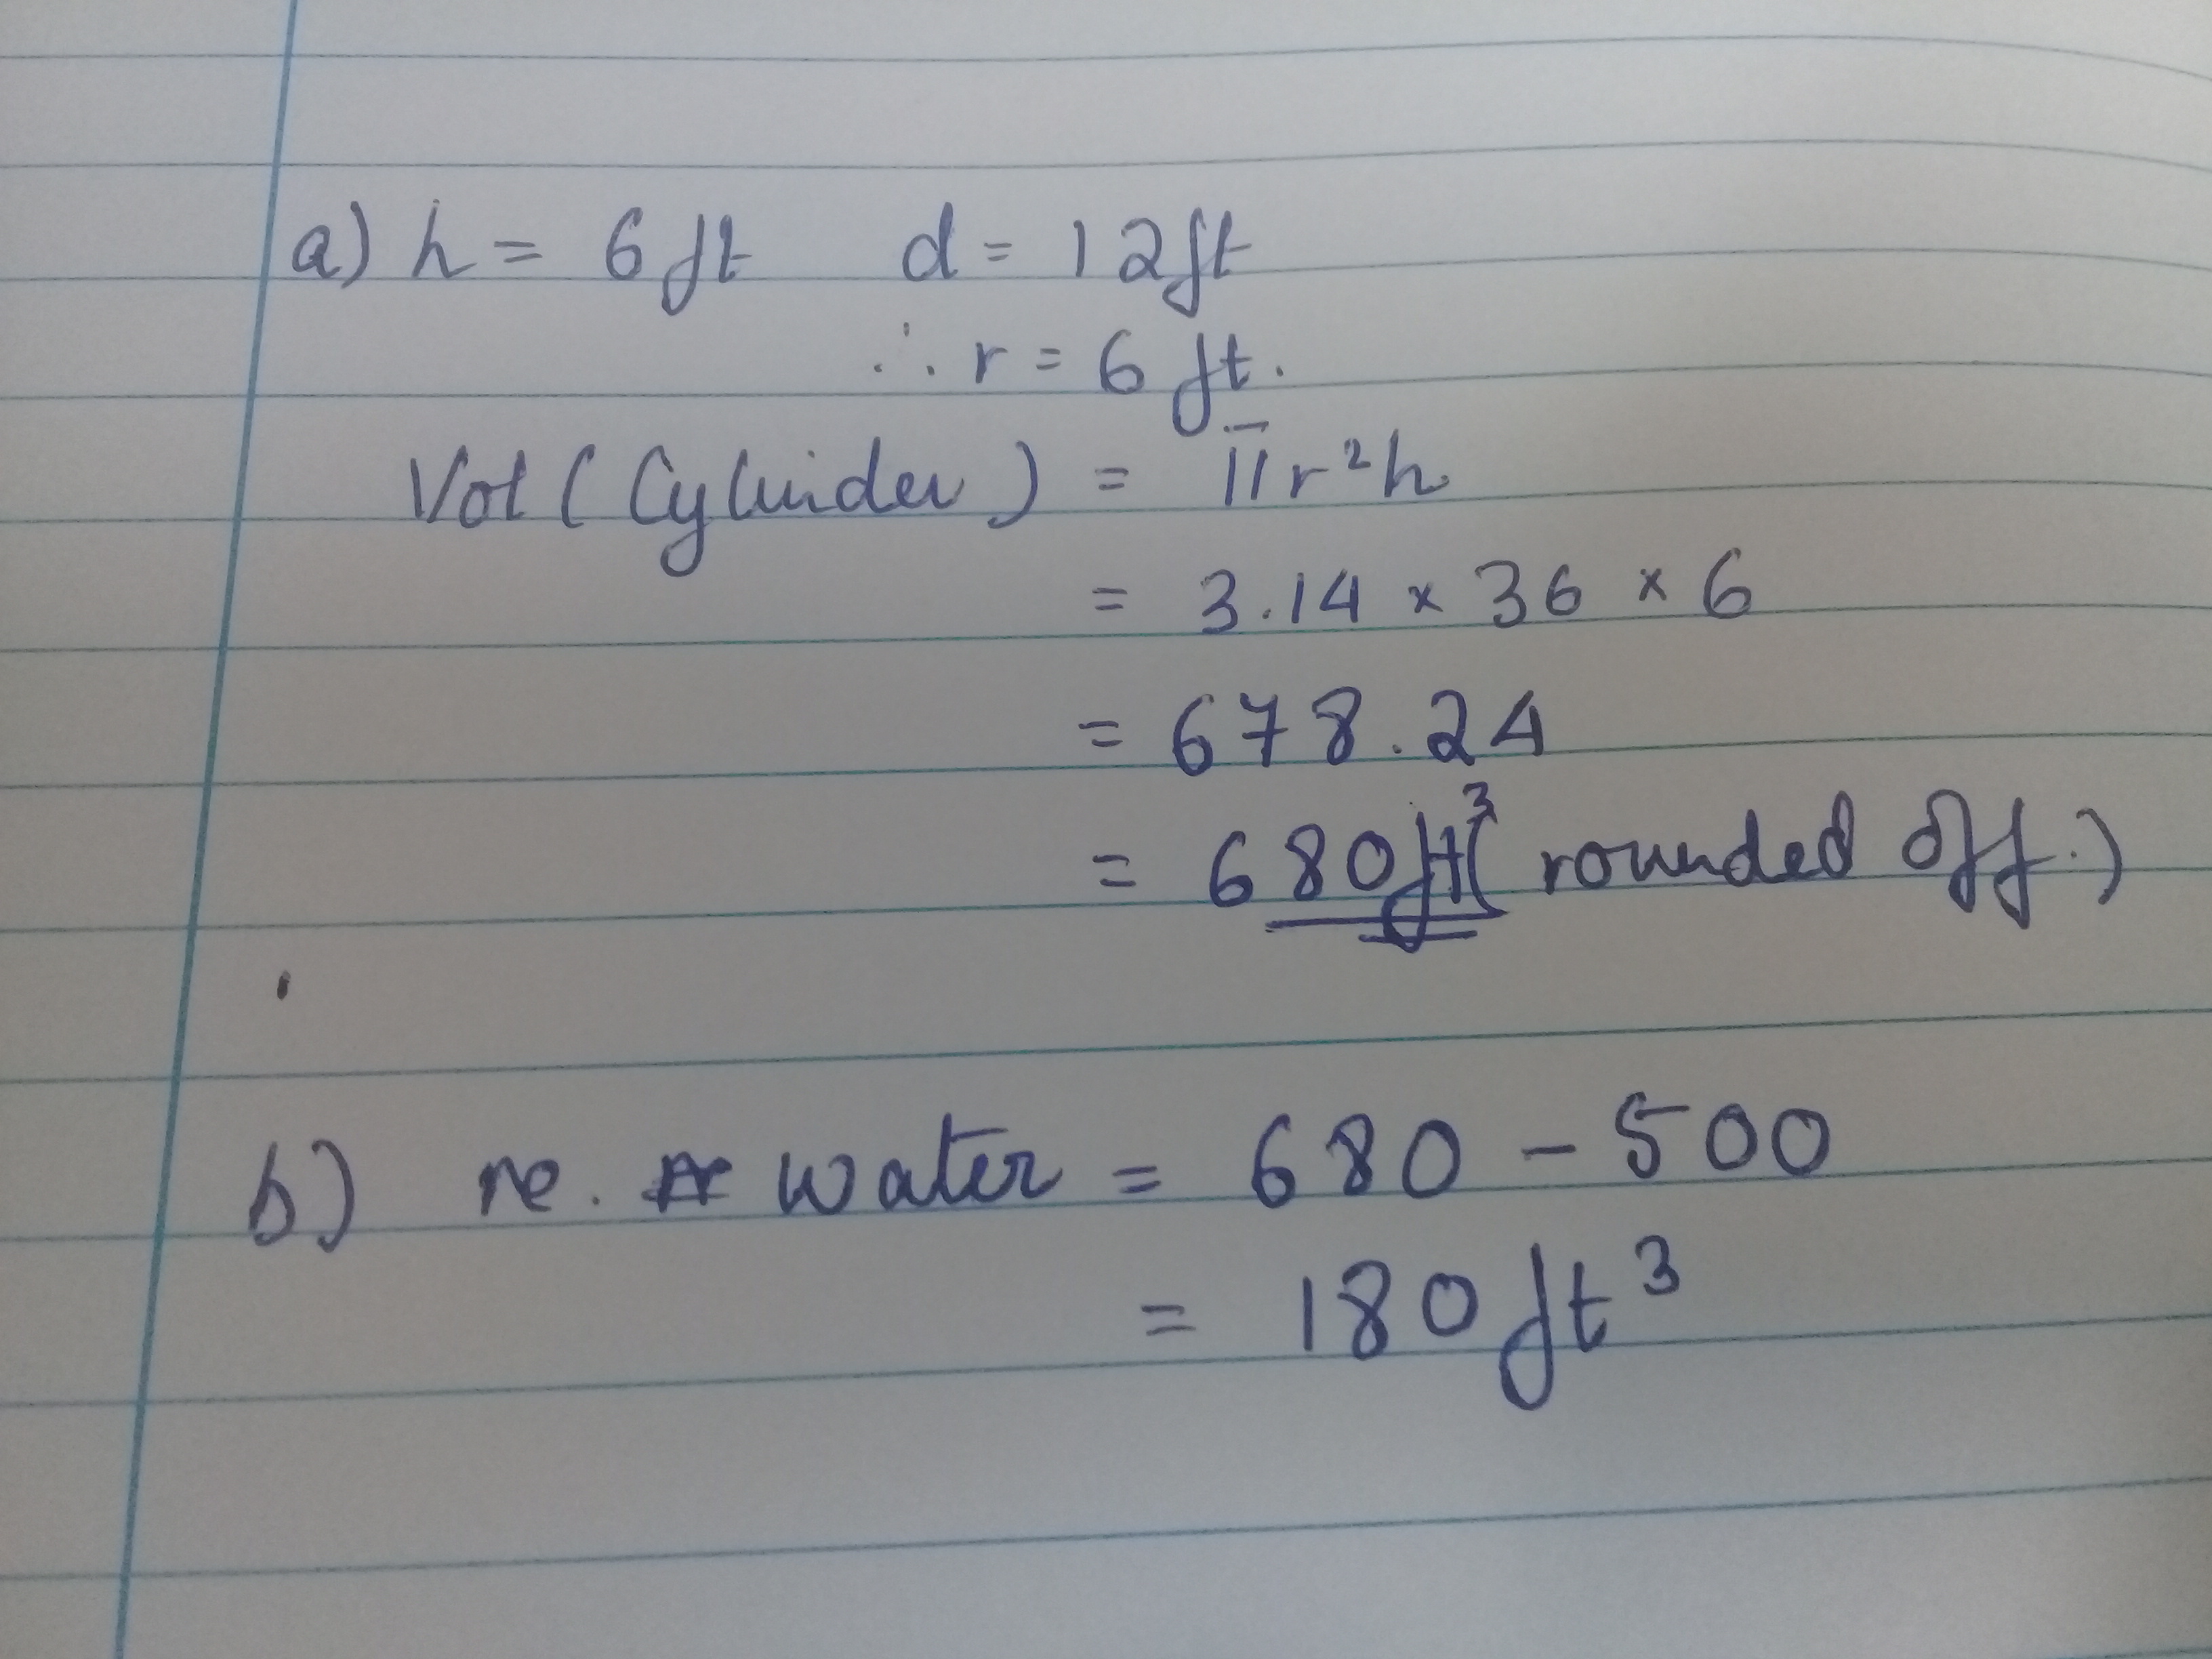 a) h = 6 ft d = 12 ft
∴ r = 6 ft.
Vol (Cylinder) = πr²h
= 3.14 × 36 × 6
= 678.24
= 680 ft³ (rounded off.)
b) re. water = 680 – 500
= 180 ft³